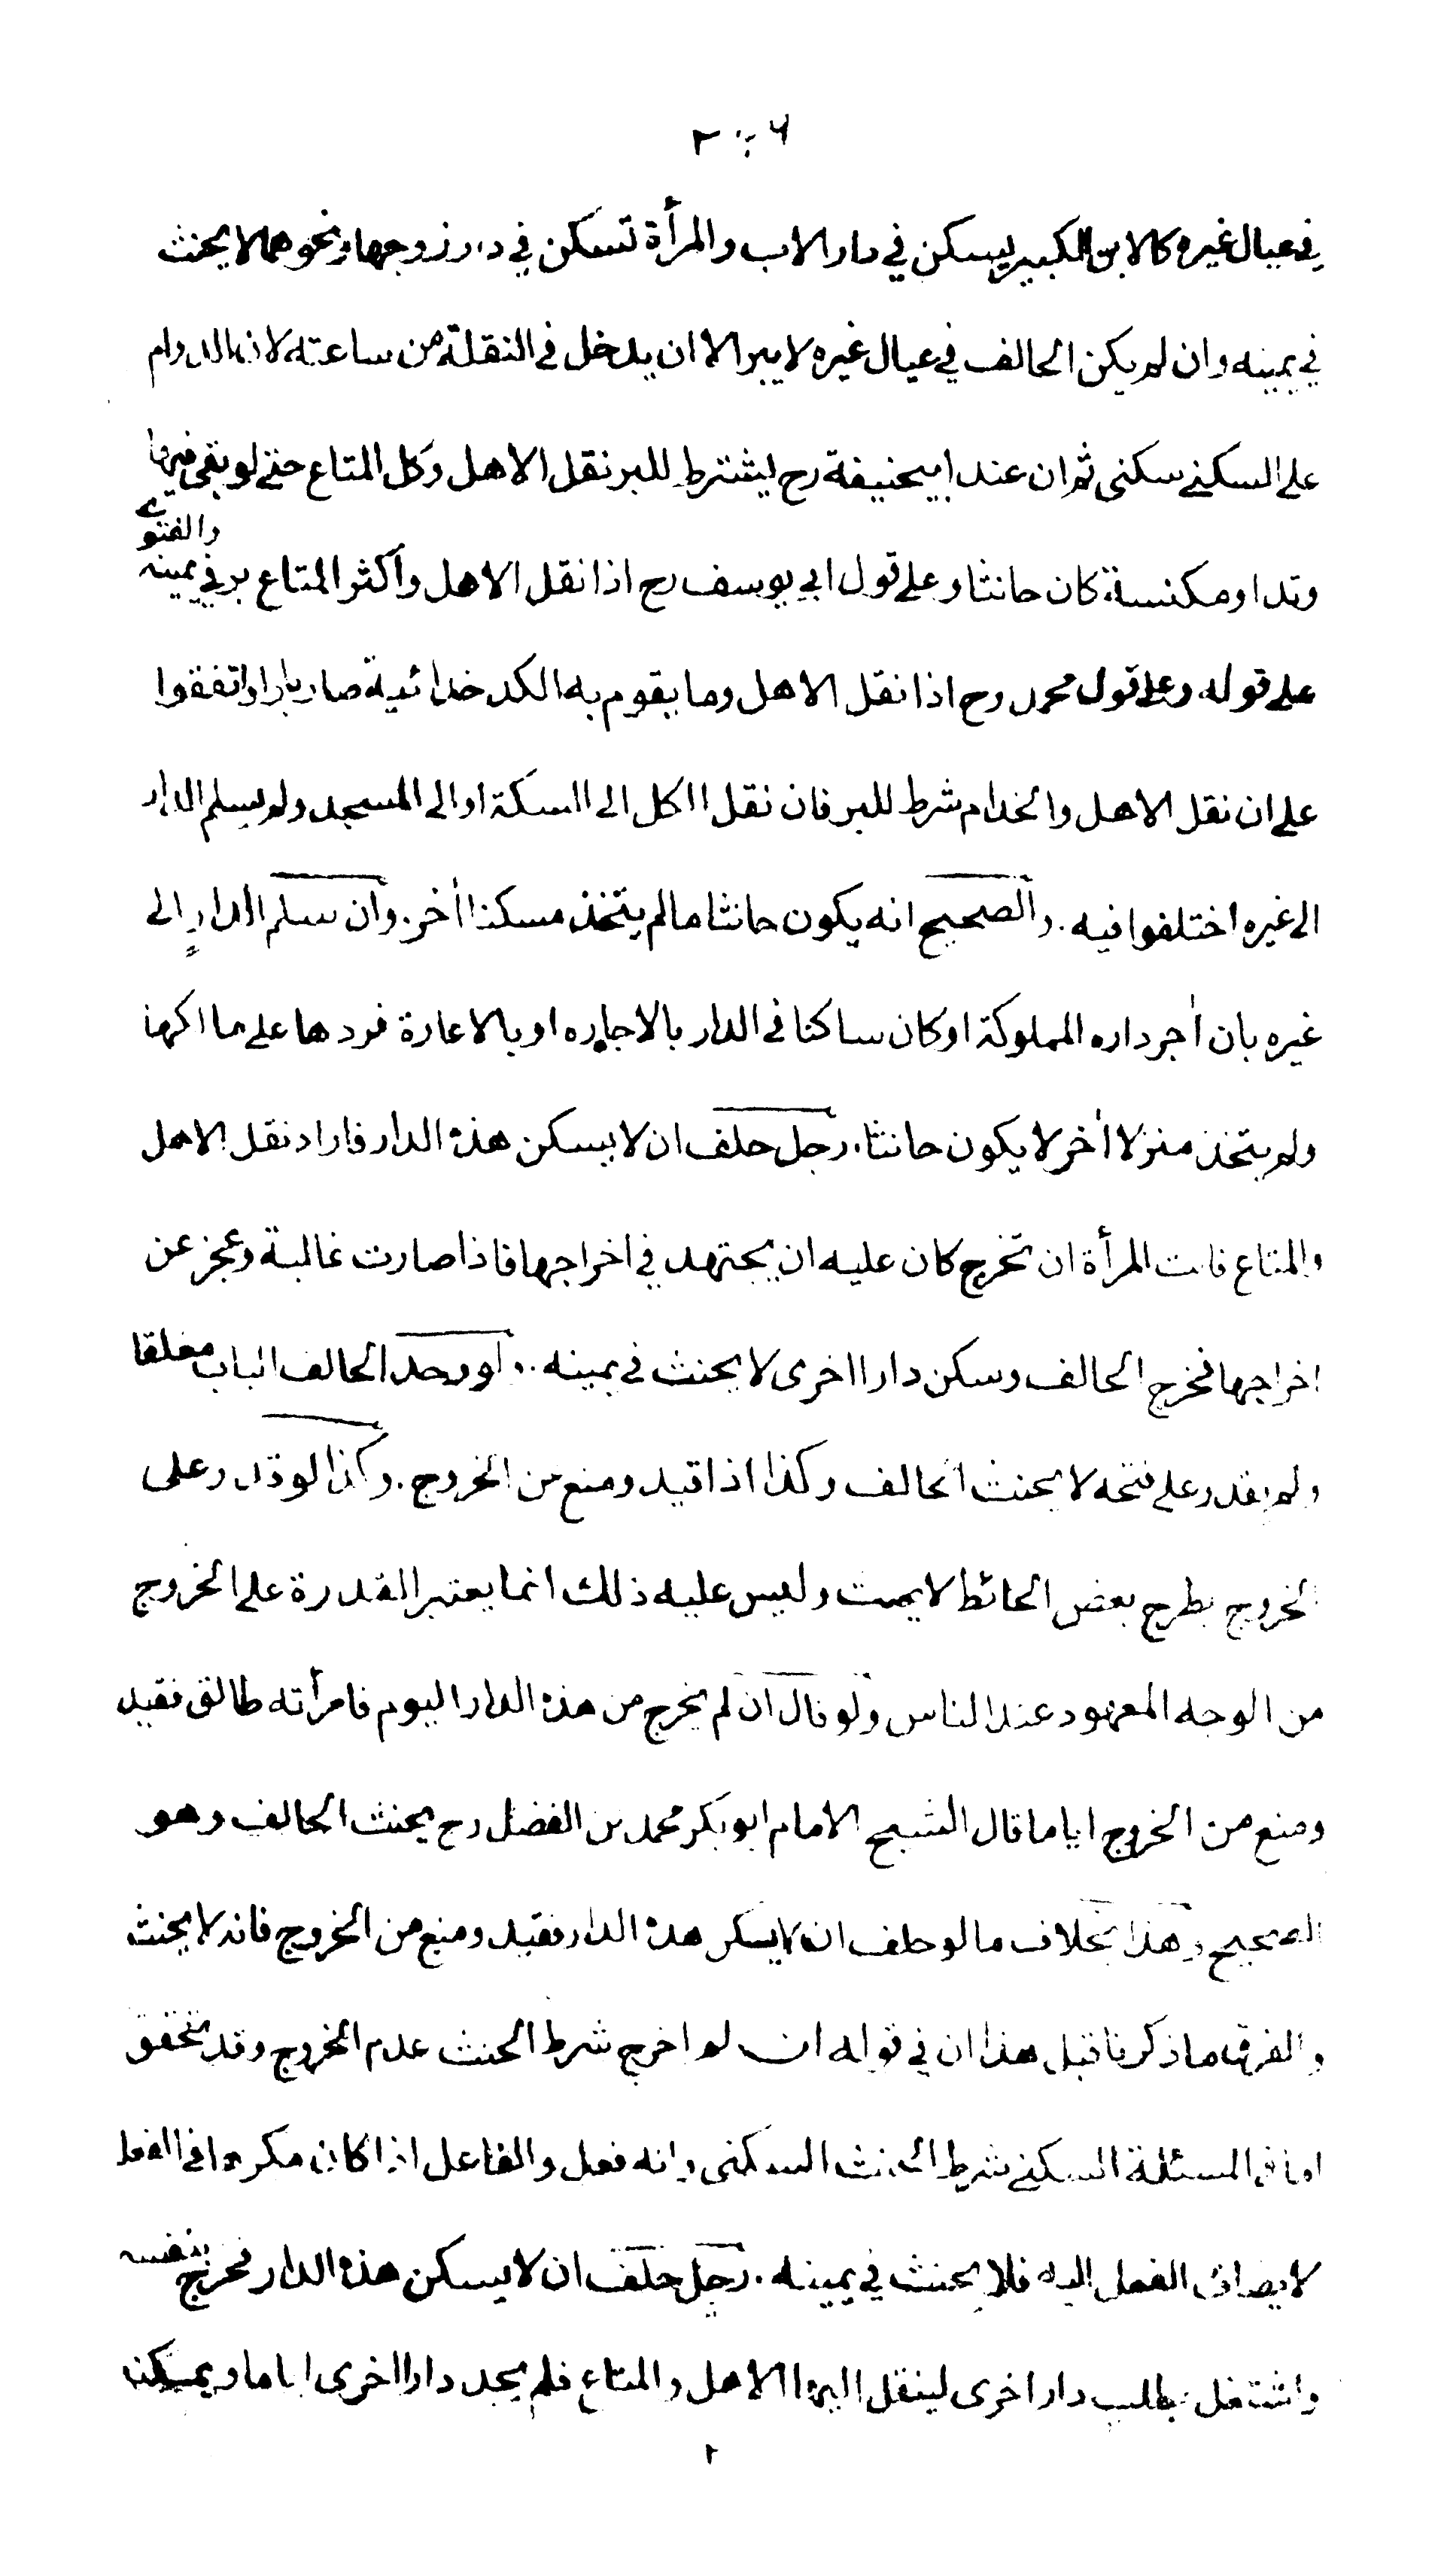 ٢٠٦
في عيال غيره كالابن الكبير يسكن في دار الاب والمرأة تسكن في دار زوجها ونحوهما لا يحنث
في يمينه وان لم يكن الحالف في عيال غيره لا يبر الا ان يدخل في النقلة من ساعته لان الدوام
على السكنى سكنى ثم ان عند ابيحنيفة رح يشترط للبر نقل الاهل وكل المتاع حتى لو بقى فيها
وتد او مكنسة كان حانثا وعلى قول ابي يوسف رح اذا نقل الاهل واكثر المتاع بر في يمينه والفتوى
على قوله وعلى قول محمد رح اذا نقل الاهل وما يقوم به الكدخدائية صار بارا واتفقوا
على ان نقل الاهل والخدام شرط للبر فان نقل الكل الى السكة او الى المسجد ولم يسلم الدار
الى غيره اختلفوا فيه . والصحيح انه يكون حانثا ما لم يتخذ مسكنا أخر . وان سلم الدار الى
غيره بان أجر داره المملوكة او كان ساكنا في الدار بالاجاره او بالاعارة فردها على مالكها
ولم يتخذ منزلا أخر لا يكون حانثا . رجل حلف ان لا يسكن هذه الدار فاراد نقل الاهل
والمتاع فابت المرأة ان تخرج كان عليه ان يجتهد في اخراجها فاذا صارت غالبة وعجز عن
اخراجها فخرج الحالف وسكن دارا اخرى لا يحنث في يمينه . ولو وجد الحالف الباب مغلقا
ولم يقدر على فتحه لا يحنث الحالف وكذا اذا قيد ومنع من الخروج . وكذا لو قدر على
الخروج بطرح بعض الحائط لا يحنث وليس عليه ذلك انما يعتبر القدرة على الخروج
من الوجه المعهود عند الناس ولو قال ان لم يخرج من هذه الدار اليوم فامرأته طالق فقيد
ومنع من الخروج اياما قال الشيخ الامام ابو بكر محمد بن الفضل رح يحنث الحالف وهو
الصحيح وهذا بخلاف ما لو حلف ان لا يسكن هذه الدار فقيد ومنع من الخروج فانه لا يحنث
والفرق ما ذكرنا قبل هذا ان في قوله ان لم اخرج شرط الحنث عدم الخروج وقد تحقق
اما في المسئلة السكنى شرط الحنث السكنى وانه فعل والفاعل اذا كان مكرها في الفعل
لا يضاف الفعل اليه فلا يحنث في يمينه . رجل حلف ان لا يسكن هذه الدار فخرج بنفسه
واشتغل بطلب دار اخرى لينقل اليها الاهل والمتاع فلم يجد دارا اخرى اياما ويمكنه